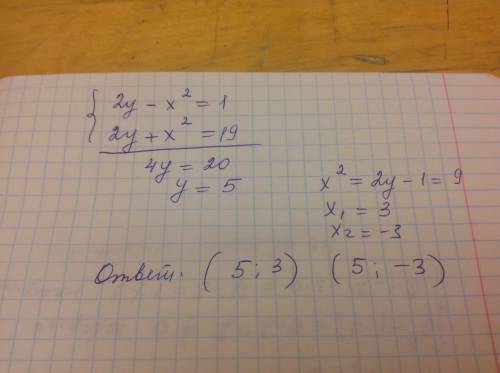 { 2y - x² = 1
2y + x² = 19
4y = 20
y = 5
x² = 2y - 1 = 9
x₁ = 3
x₂ = -3
Ответ: (5; 3) (5; -3)